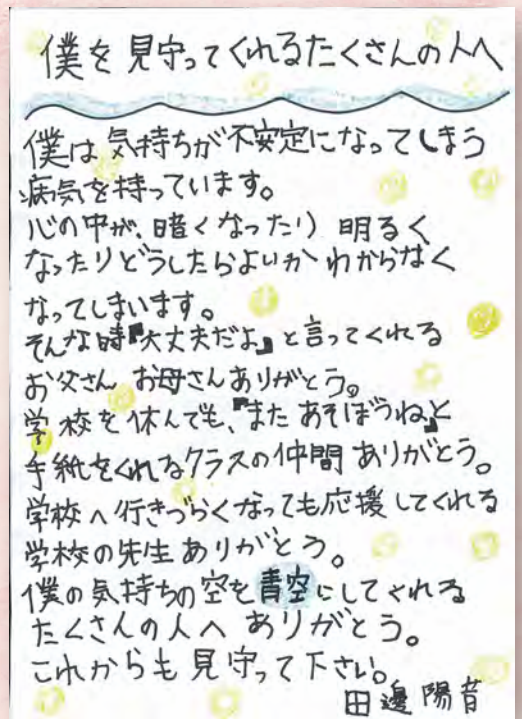 僕を見守ってくれるたくさんの人へ
僕は気持ちが不安定になってしまう
病気を持っています。
心の中が、暗くなったり 明るく
なったりどうしたらよいか わからなく
なってしまいます。
そんな時『大丈夫だよ』と言ってくれる
お父さん お母さんありがとう。
学校を休んでも、『また あそぼうね』と
手紙をくれたクラスの仲間 ありがとう。
学校へ行きづらくなっても応援してくれる
学校の先生ありがとう。
僕の気持ちの空を青空にしてくれる
たくさんの人へ ありがとう。
これからも見守って下さい。
田邊 陽音